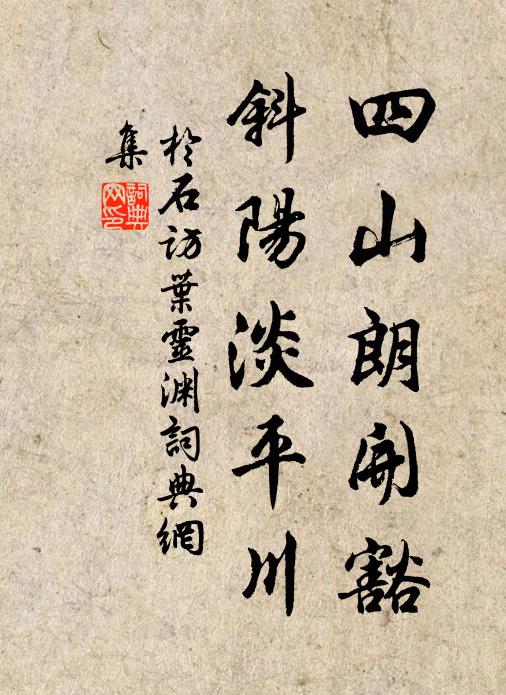 四山朗開豁
斜陽淡平川
於石訪葉靈渊詞典網
集
詞典網印